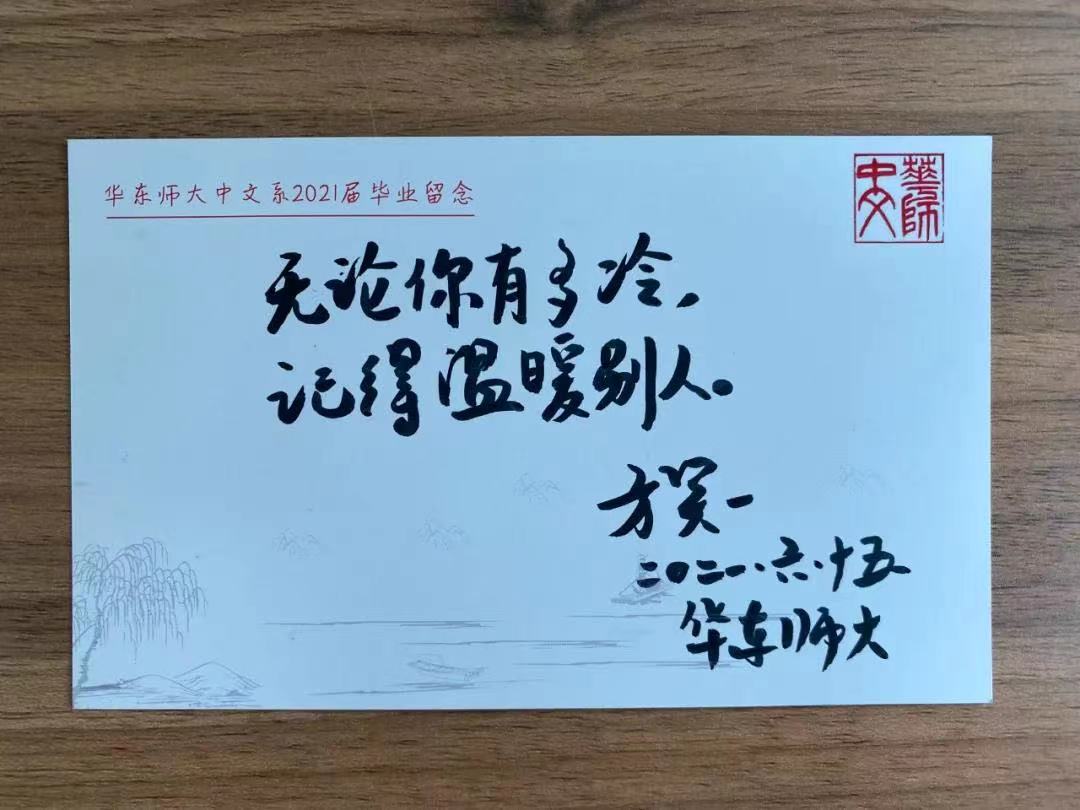 华东师大中文系2021届毕业留念
華師
中文
无论你有多冷，
记得温暖别人。
方笑一
二〇二一.六.十五
华东师大